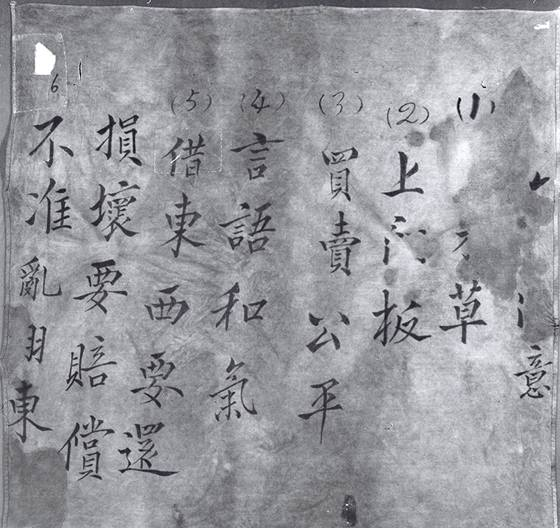 意
(1) 草
(2) 上门板
(3) 買賣公平
(4) 言語和氣
(5) 借東西要還
損壞要賠償
不准亂
東
6